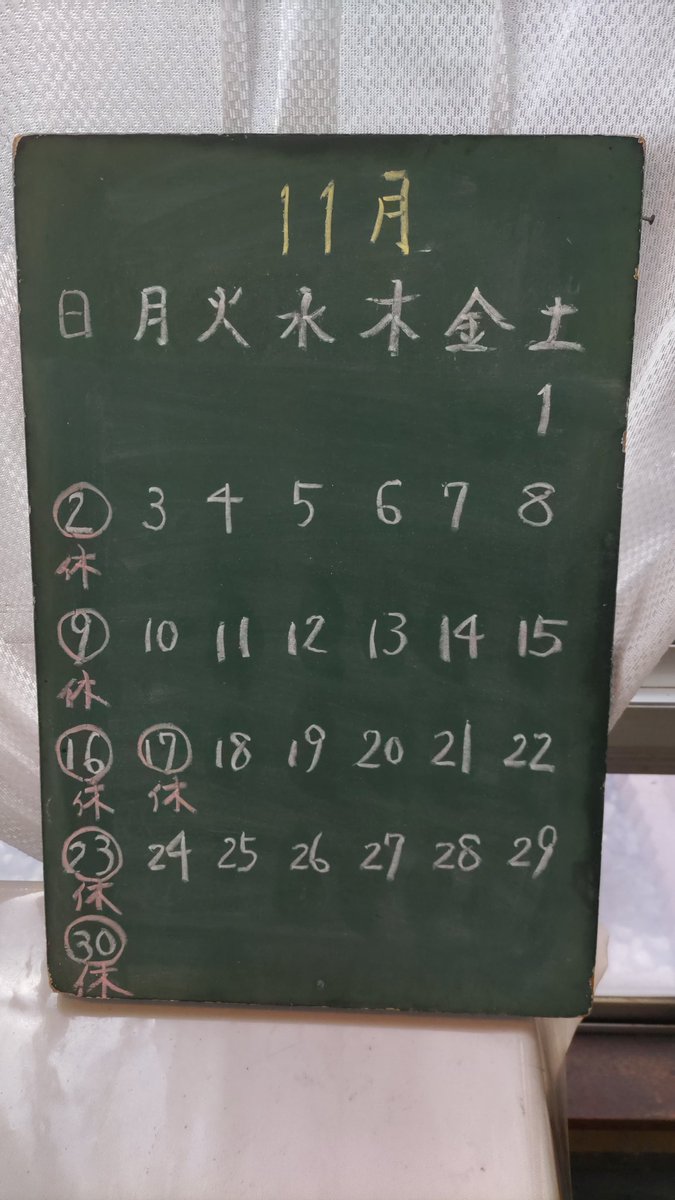 11月
日 月 火 水 木 金 土
1
2 3 4 5 6 7 8
休
9 10 11 12 13 14 15
休
16 17 18 19 20 21 22
休 休
23 24 25 26 27 28 29
休
30
休